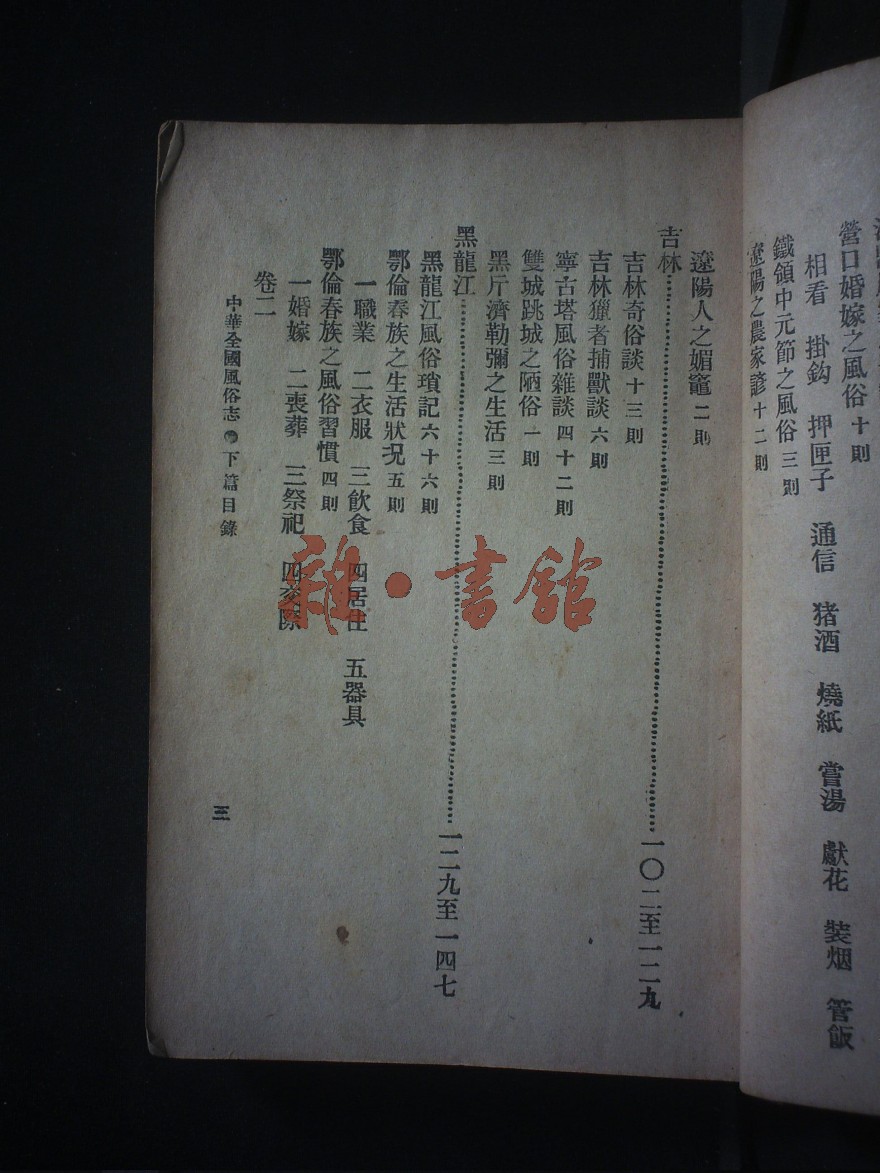 營口婚嫁之風俗 十則
相看 掛鈎 押匣子 通信 猪酒 燒紙 嘗湯 獻花 裝烟 管飯
鐵嶺中元節之風俗 三則
遼陽之農家諺 十二則
遼陽人之媚竈 二則
吉林……一〇二至一二九
吉林奇俗談 十三則
吉林獵者捕獸談 六則
寧古塔風俗雜談 四十二則
雙城跳城之陋俗 一則
黑斤濟勒彌之生活 三則
黑龍江……一二九至一四七
黑龍江風俗瑣記 六十六則
鄂倫春族之生活狀況 五則
一職業 二衣服 三飲食 四居住 五器具
鄂倫春族之風俗習慣 四則
一婚嫁 二喪葬 三祭祀 四交際
卷二
中華全國風俗志 下篇目錄
三
雜·書館